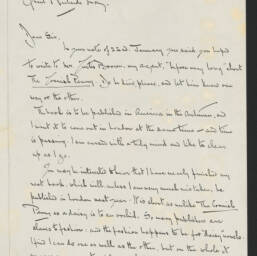 Grant Richards Esq.
Dear Sir,
In your note of 22nd January you said you hoped
to write to Mr. Curtis Brown, my agent, "before very long" about
The Cornish Penny. Do so then please, and let him know one
way or the other.
The book is to be published in America in the Autumn, and
I want it to come out in London at the same time & and time
is passing. I am cursed with a tidy mind and like to clear
up as I go.
You may be interested to hear that I have nearly finished my
next book, which will, unless I am very much mistaken, be
published in London next year. It is about as unlike The Cornish
Penny as a daisy is to an orchid. So many publishers are
slaves to fashion, and the fashion happens to be for "daisy" novels.
I find I can do one as well as the other, but on the whole, it